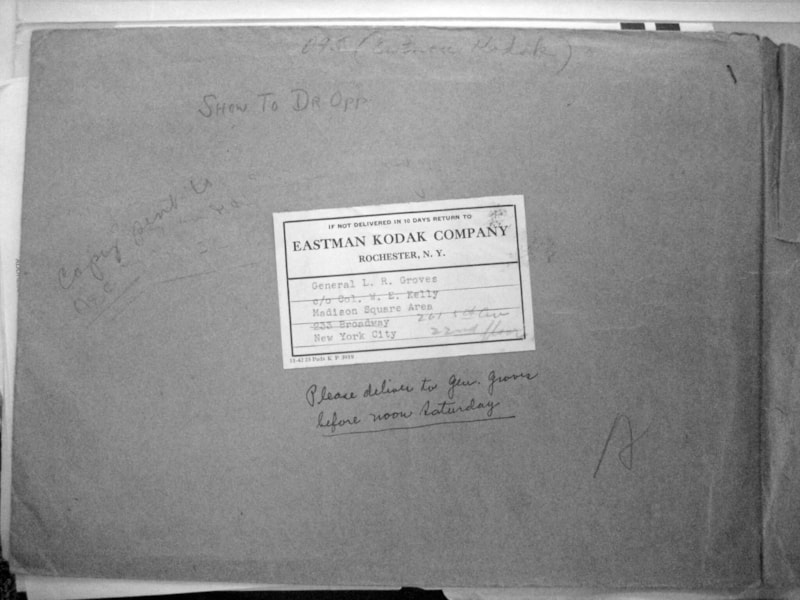 (Eastman Kodak)
SHOW TO DR OPP
Copy sent to
IF NOT DELIVERED IN 10 DAYS RETURN TO
EASTMAN KODAK COMPANY
ROCHESTER, N. Y.
General L. R. Groves
c/o Col. W. E. Kelly
Madison Square Area
933 Broadway
New York City
261 5th Ave
22nd floor
Please deliver to Gen. Groves
before noon Saturday
A